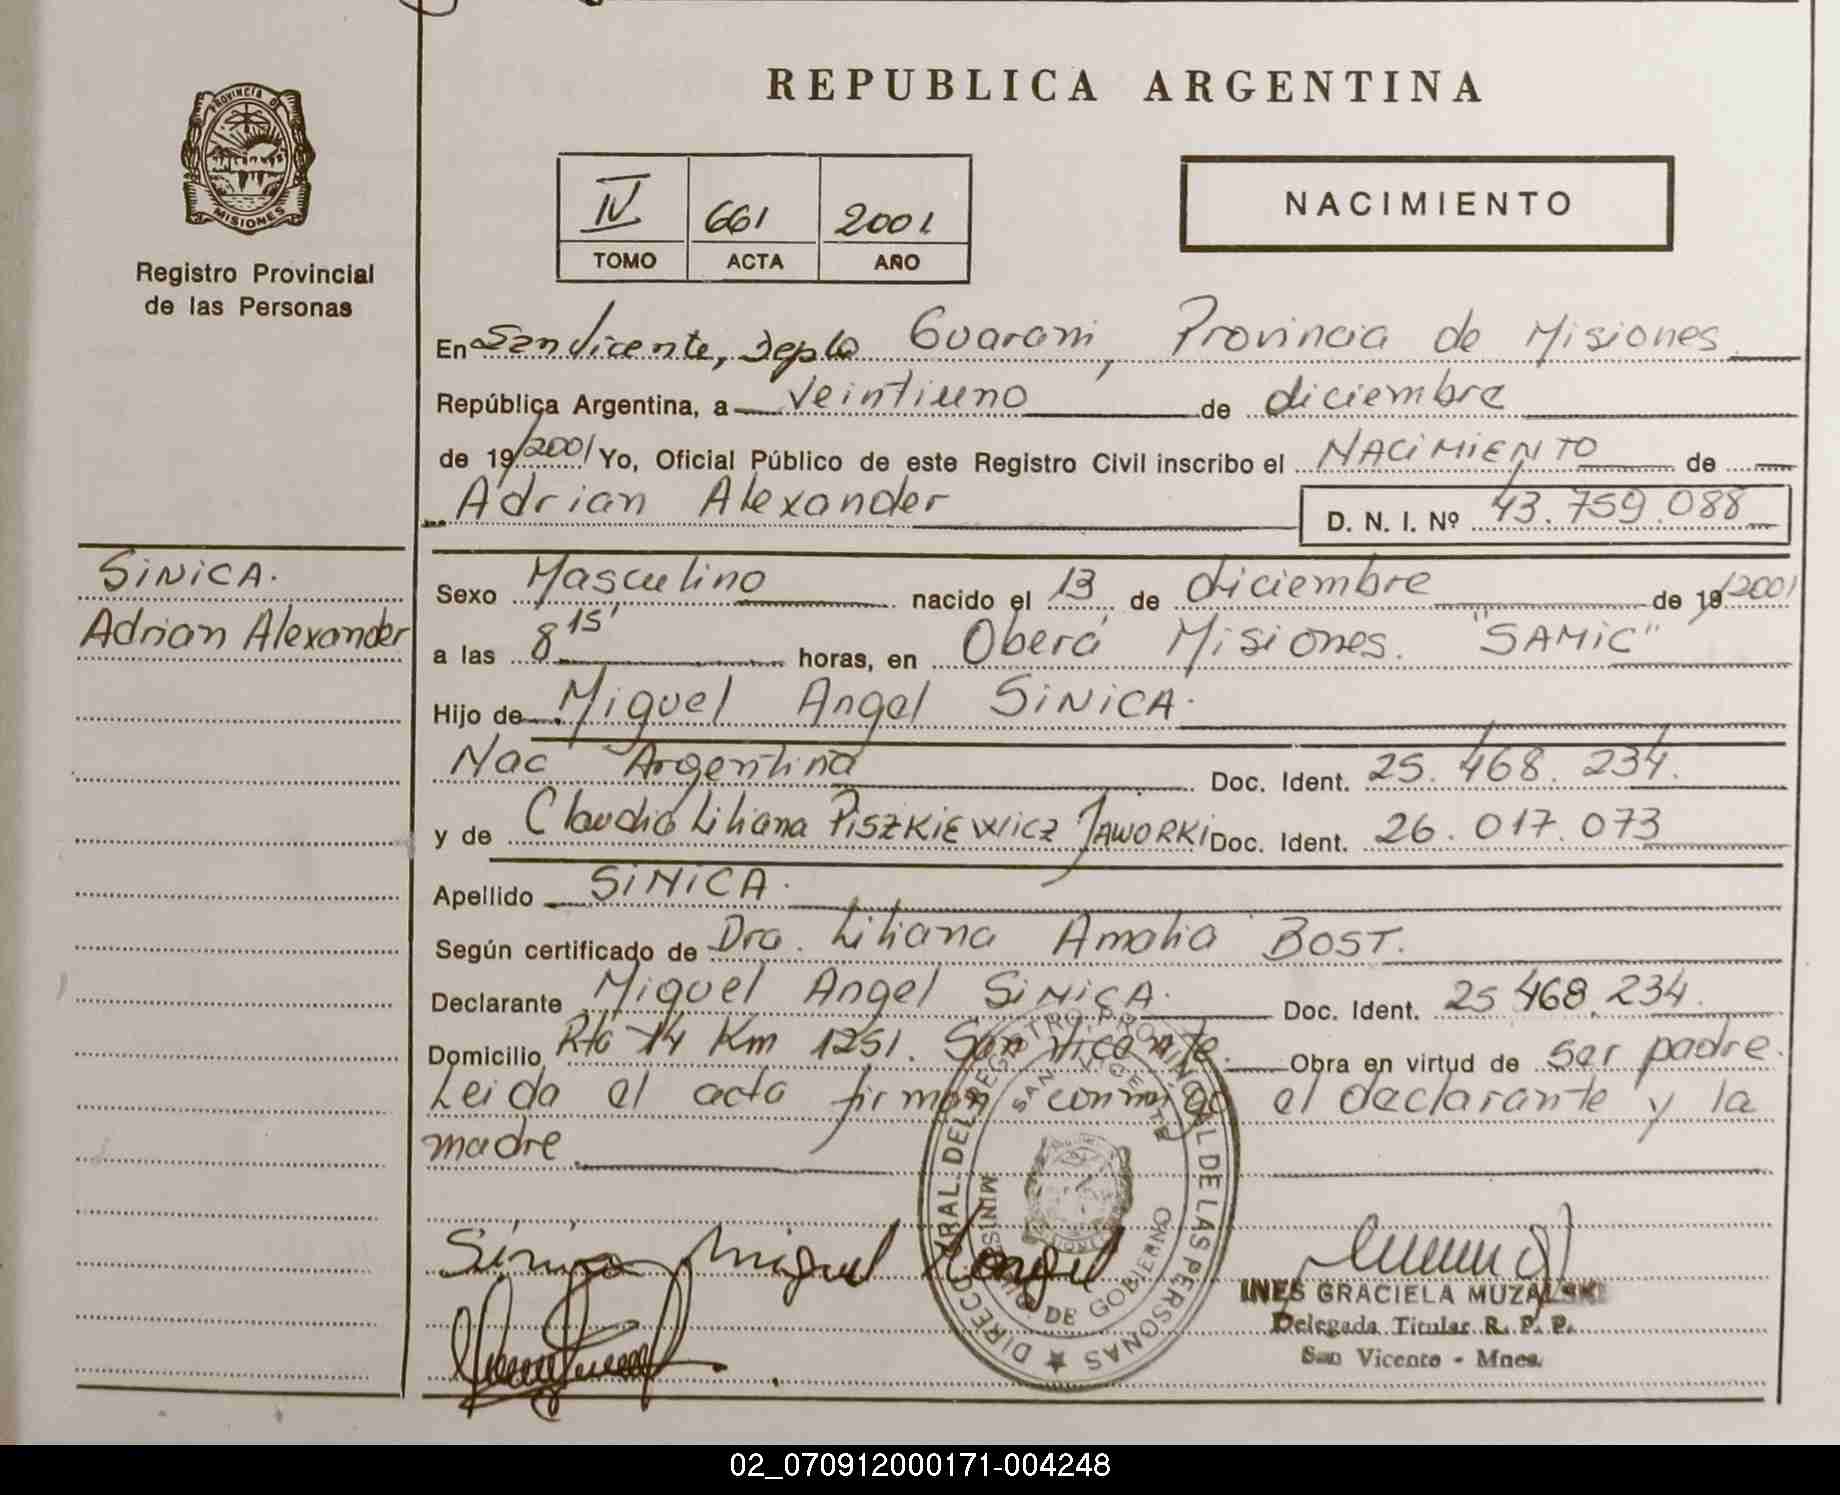 PROVINCIA DE
MISIONES
Registro Provincial
de las Personas
REPUBLICA ARGENTINA
IV 661 2001
TOMO ACTA AÑO
NACIMIENTO
En San Vicente, Depto Guarani, Provincia de Misiones
República Argentina, a veintiuno de diciembre
de 19/2001 Yo, Oficial Público de este Registro Civil inscribo el NACIMIENTO de
Adrian Alexander D. N. I. Nº 43.759.088
SINICA.
Adrian Alexander
Sexo Masculino nacido el 13 de diciembre de 19/2001
a las 8 15' horas, en Oberá Misiones. "SAMIC"
Hijo de Miguel Angel SINICA.
Nac Argentina Doc. Ident. 25.468.234.
y de Claudia Liliana PISZKIEWICZ JAWORKI Doc. Ident. 26.017.073
Apellido SINICA.
Según certificado de Dra. Liliana Amalia BOST.
Declarante Miguel Angel SINICA. Doc. Ident. 25 468.234.
Domicilio Rta 14 Km 1251. San Vicente. Obra en virtud de ser padre.
Leida el acta firman conmigo el declarante y la
madre
Sinica Miguel Angel
DIRECC. GRAL. DEL REGISTRO PROVINCIAL DE LAS PERSONAS
SAN VICENTE
MINISTERIO DE GOBIERNO
INES GRACIELA MUZALSKI
Delegada Titular R. P. P.
San Vicente - Mnes.
02_070912000171-004248